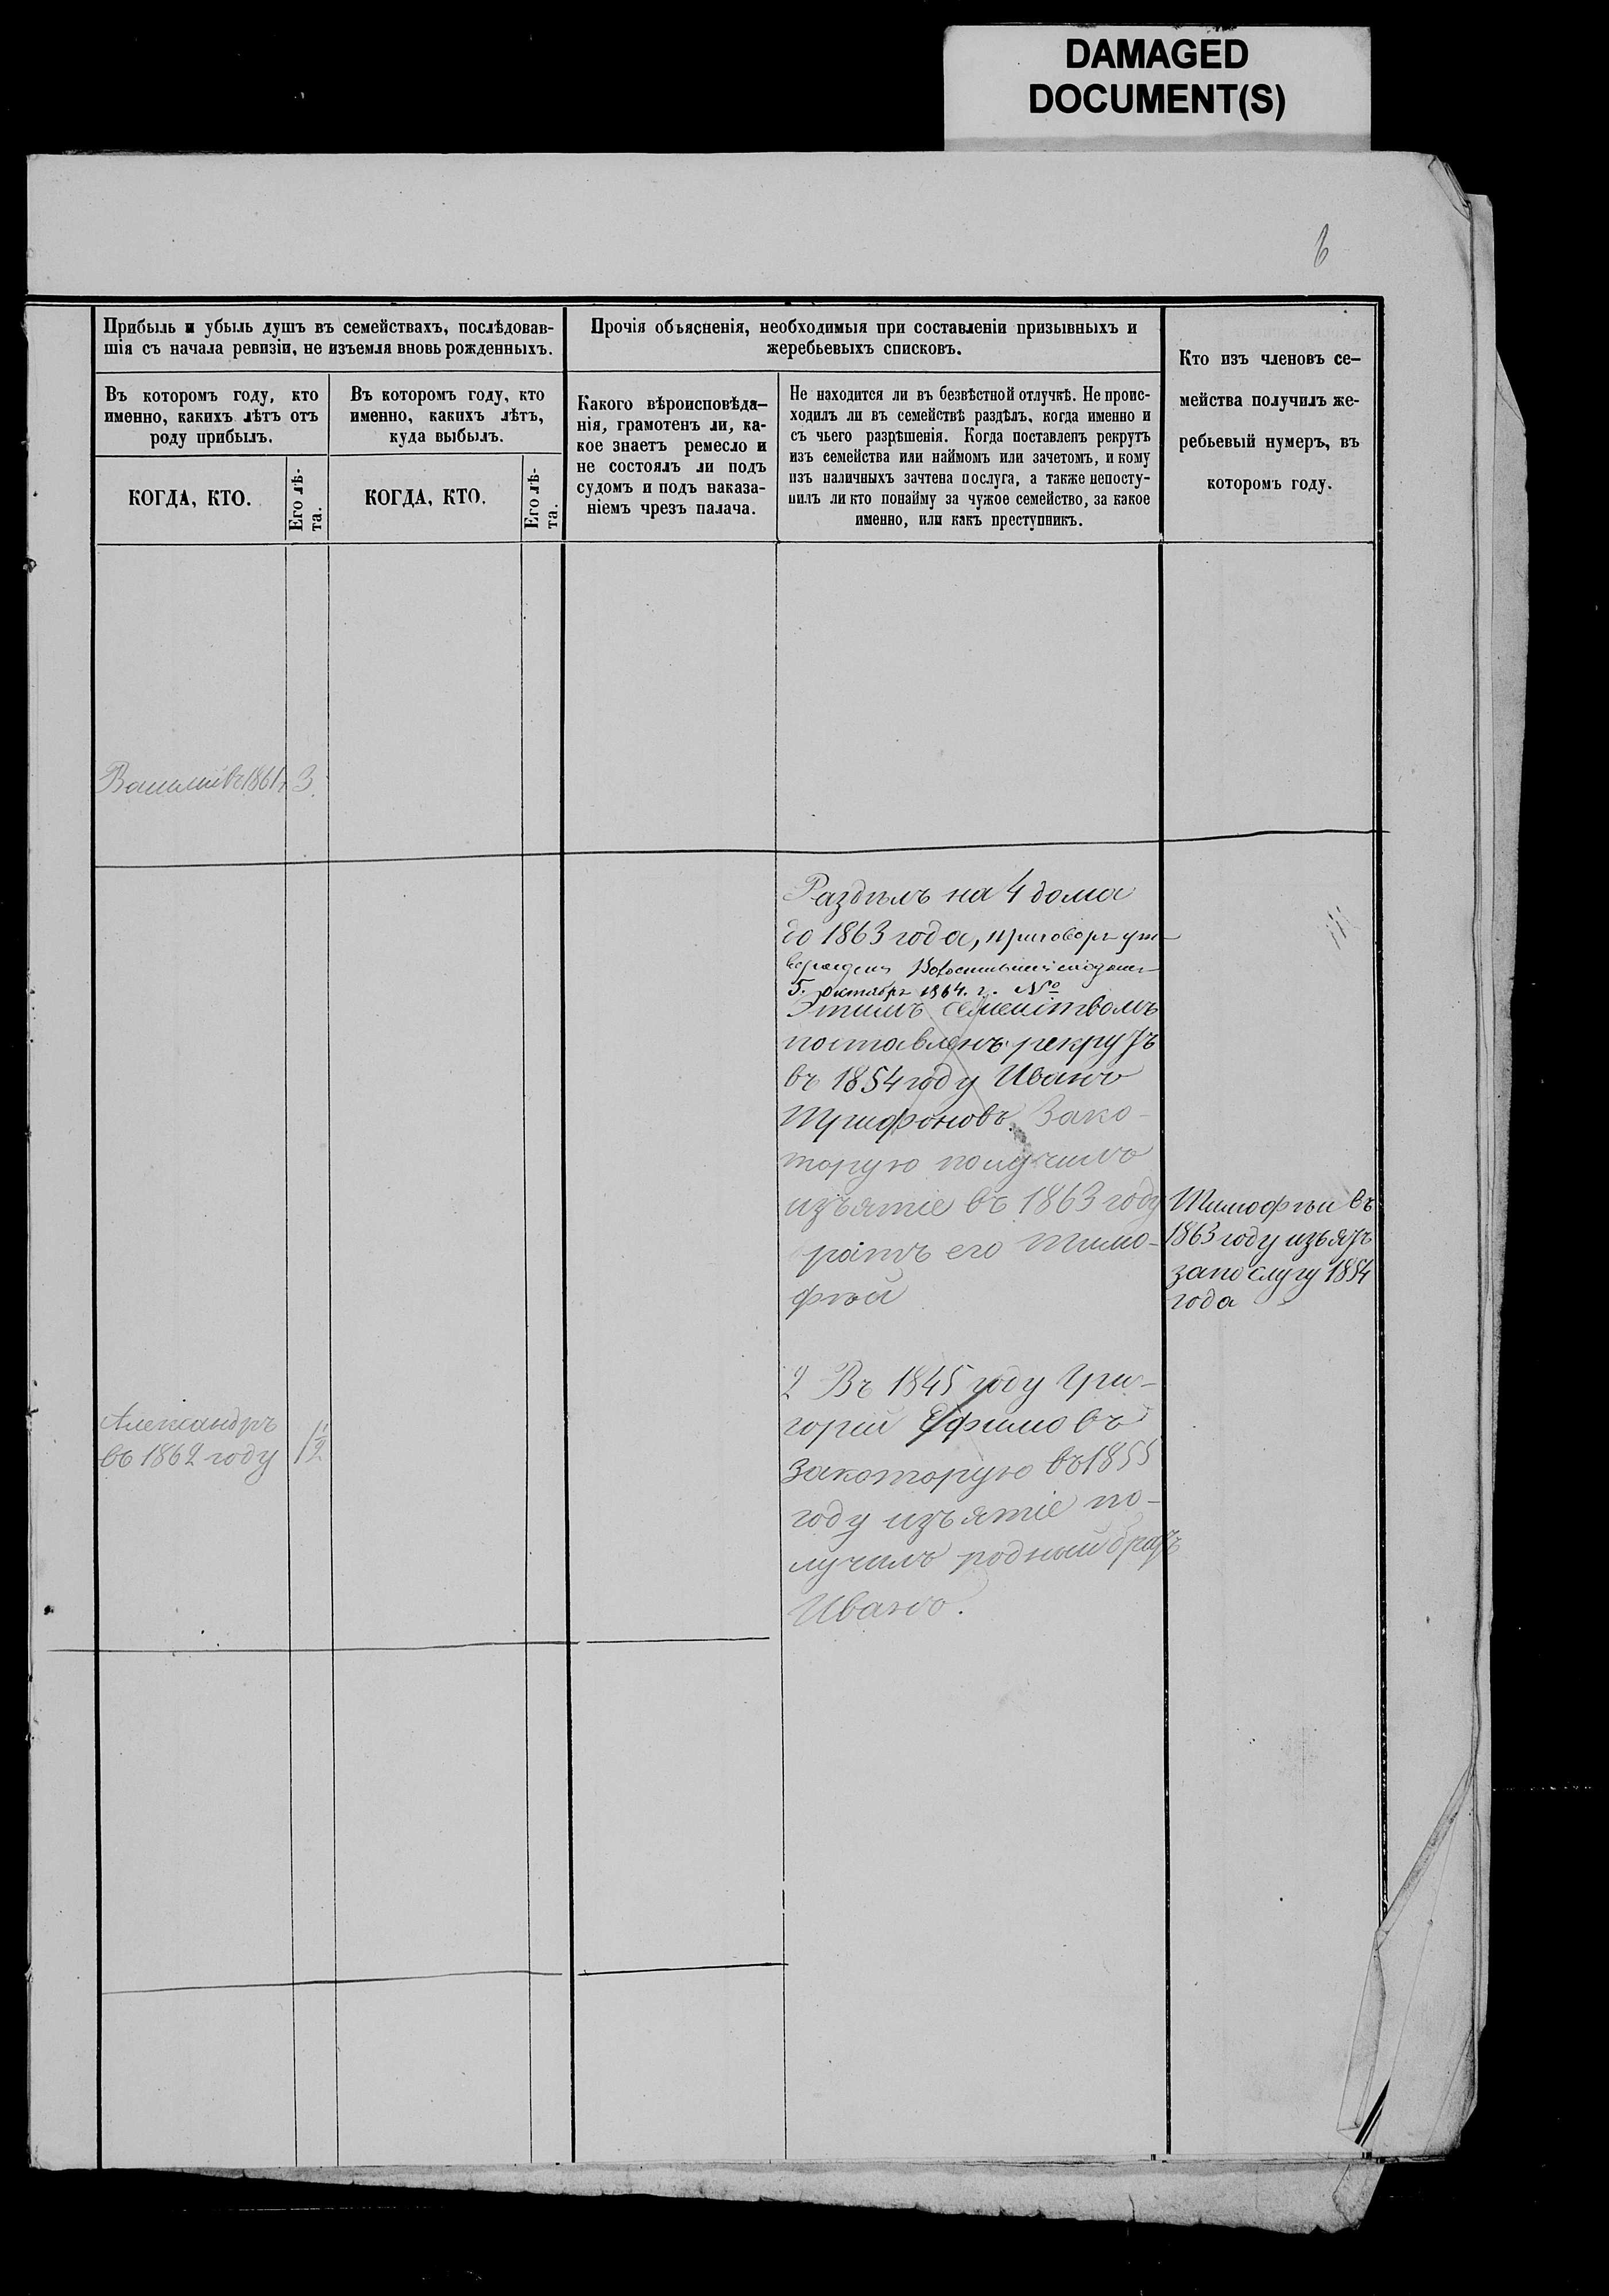 DAMAGED
DOCUMENT(S)
6
Прибыль и убыль душъ въ семействахъ, послѣдовав-
шія съ начала ревизіи, не изъемля вновь рожденныхъ.
Въ которомъ году, кто
именно, какихъ лѣтъ отъ
роду прибылъ.
Въ которомъ году, кто
именно, какихъ лѣтъ,
куда выбылъ.
КОГДА, КТО.
Его лѣ-
та.
КОГДА, КТО.
Его лѣ-
та.
Прочія объясненія, необходимыя при составленіи призывныхъ и
жеребьевыхъ списковъ.
Какого вѣроисповѣда-
нія, грамотенъ ли, ка-
кое знаетъ ремесло и
не состоялъ ли подъ
судомъ и подъ наказа-
ніемъ чрезъ палача.
Не находится ли въ безвѣстной отлучкѣ. Не проис-
ходилъ ли въ семействѣ раздѣлъ, когда именно и
съ чьего разрѣшенія. Когда поставленъ рекрутъ
изъ семейства или наймомъ или зачетомъ, и кому
изъ наличныхъ зачтена послуга, а также непосту-
пилъ ли кто понайму за чужое семейство, за какое
именно, или какъ преступникъ.
Кто изъ членовъ се-
мейства получилъ же-
ребьевый нумеръ, въ
которомъ году.
Василій въ 1861 г 3.
Раздѣлъ на 4 дома
до 1863 года, приговоръ ут-
вержденъ
5. октября 1864. г. №
Этимъ семействомъ
поставленъ рекрутъ
въ 1854 году Иванъ
Трифоновъ. Зако-
торую получилъ
изъятіе въ 1863 году
братъ его Тимо-
фѣй
Тимофѣй въ
1863 году изъятъ
запослугу 1854
года
2 Въ 1845 году Гри-
горій Ефимовъ
закоторую въ 1855
году изъятіе по-
лучилъ родный братъ
Иванъ.
Александръ
въ 1862 году 1½